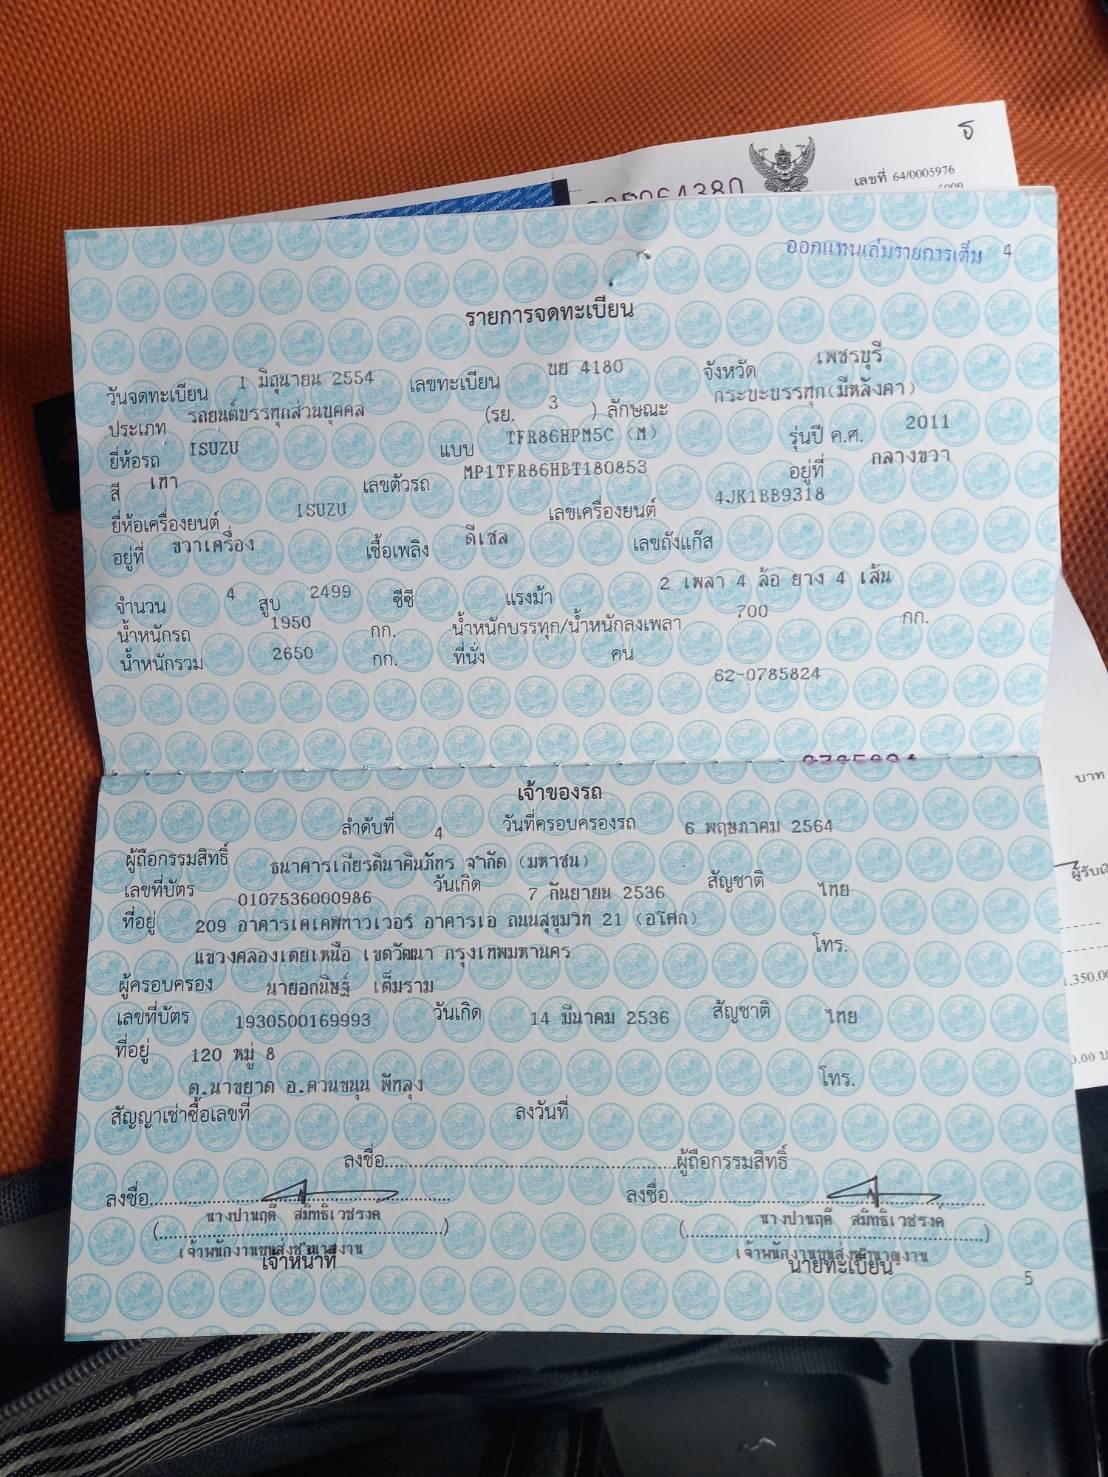 ธ
เลขที่ 64/0005976
ออกแทนเล่มรายการเต็ม 4
รายการจดทะเบียน
วันจดทะเบียน 1 มิถุนายน 2554 เลขทะเบียน ขย 4180 จังหวัด เพชรบุรี
ประเภท รถยนต์บรรทุกส่วนบุคคล (รย. 3 ) ลักษณะ กระบะบรรทุก(มีหลังคา)
ยี่ห้อรถ ISUZU แบบ TFR86HPM5C (M) รุ่นปี ค.ศ. 2011
สี เทา เลขตัวรถ MP1TFR86HBT180853 อยู่ที่ กลางขวา
ยี่ห้อเครื่องยนต์ ISUZU เลขเครื่องยนต์ 4JK1BB9318
อยู่ที่ ขวาเครื่อง เชื้อเพลิง ดีเซล เลขถังแก๊ส
จำนวน 4 สูบ 2499 ซีซี แรงม้า 2 เพลา 4 ล้อ ยาง 4 เส้น
น้ำหนักรถ 1950 กก. น้ำหนักบรรทุก/น้ำหนักลงเพลา 700 กก.
น้ำหนักรวม 2650 กก. ที่นั่ง คน
62-0785824
บาท
เจ้าของรถ
ลำดับที่ 4 วันที่ครอบครองรถ 6 พฤษภาคม 2564
ผู้ถือกรรมสิทธิ์ ธนาคารเกียรตินาคินภัทร จำกัด (มหาชน)
เลขที่บัตร 0107536000986 วันเกิด 7 กันยายน 2536 สัญชาติ ไทย
ที่อยู่ 209 อาคารเคเคพีทาวเวอร์ อาคารเอ ถนนสุขุมวิท 21 (อโศก)
แขวงคลองเตยเหนือ เขตวัฒนา กรุงเทพมหานคร โทร.
ผู้ครอบครอง นายอกนิษฐ์ เต็มราม
เลขที่บัตร 1930500169993 วันเกิด 14 มีนาคม 2536 สัญชาติ ไทย
ที่อยู่ 120 หมู่ 8
ต.นาขยาด อ.ควนขนุน พัทลุง โทร.
สัญญาเช่าซื้อเลขที่ ลงวันที่
ลงชื่อ ผู้ถือกรรมสิทธิ์
ลงชื่อ ลงชื่อ
(นางปานฤดี สมิทธิเวชรงค์) (นางปานฤดี สมิทธิเวชรงค์)
เจ้าพนักงานขนส่งชำนาญงาน เจ้าพนักงานขนส่งชำนาญงาน
เจ้าหน้าที่ นายทะเบียน
5